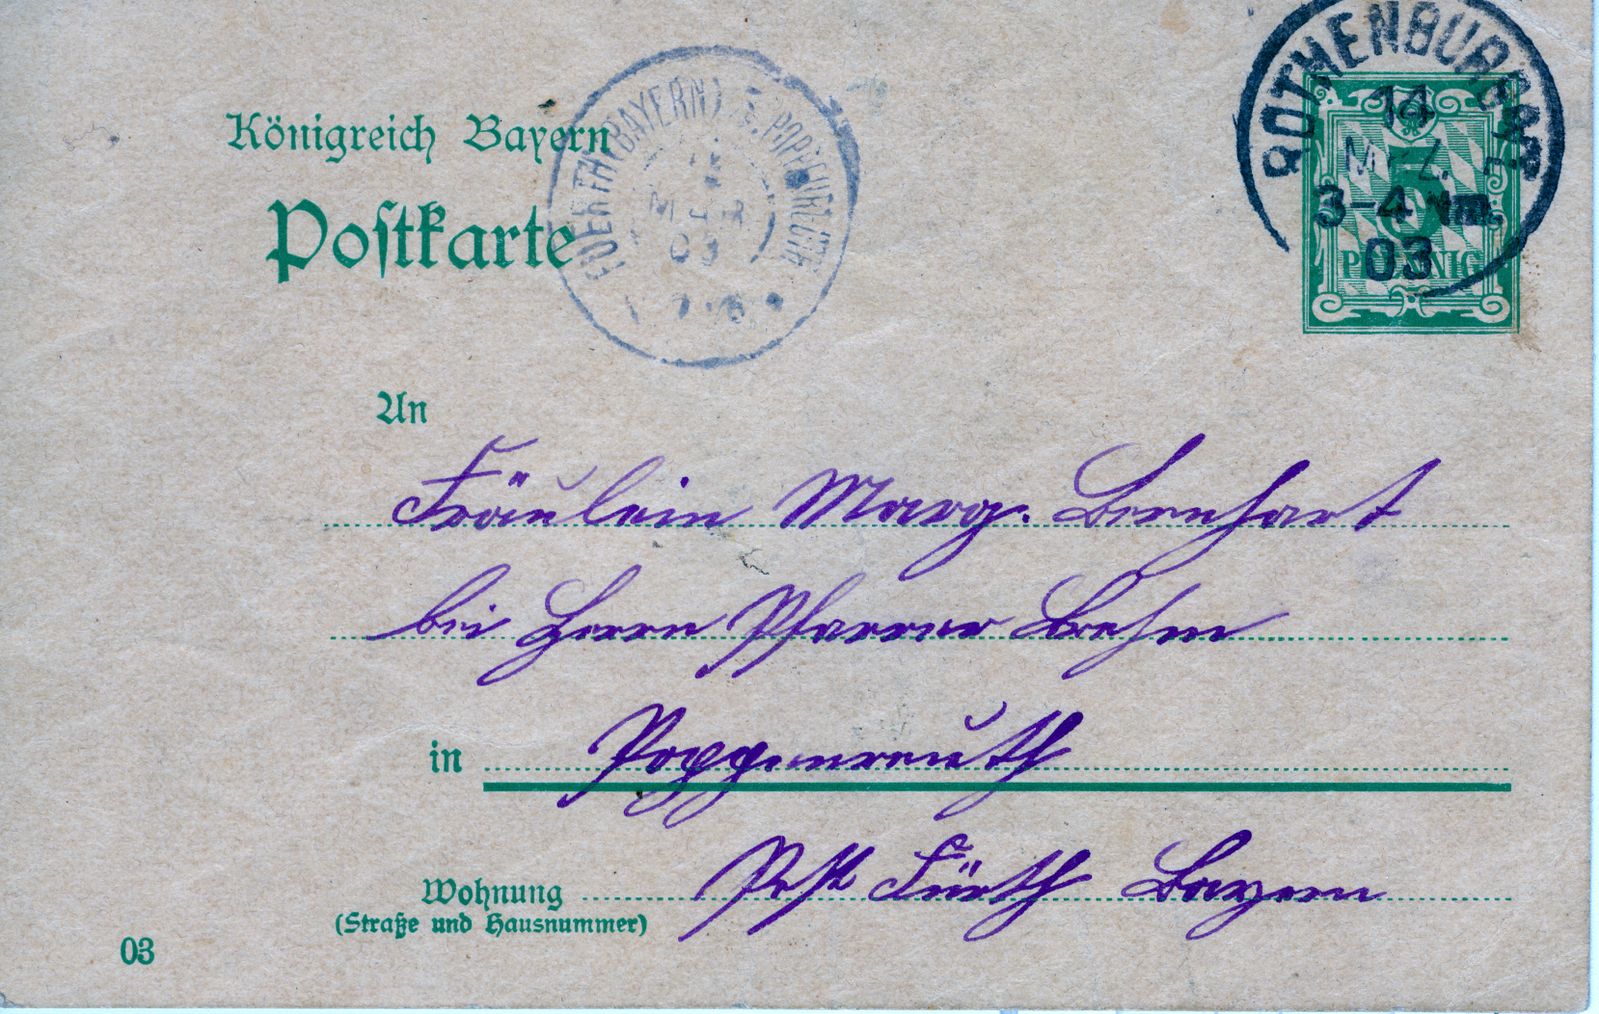 Königreich Bayern
Postkarte
FUERTH (BAYERN)
03
ROTHENBURG
14
MRZ.
3-4 Nm.
03
5
PFENNIG
An
Fräulein Marg. Bernhart
bei Herrn Pfarrer Brehm
in Poppenreuth
Post Fürth Bayern
Wohnung
(Straße und Hausnummer)
03